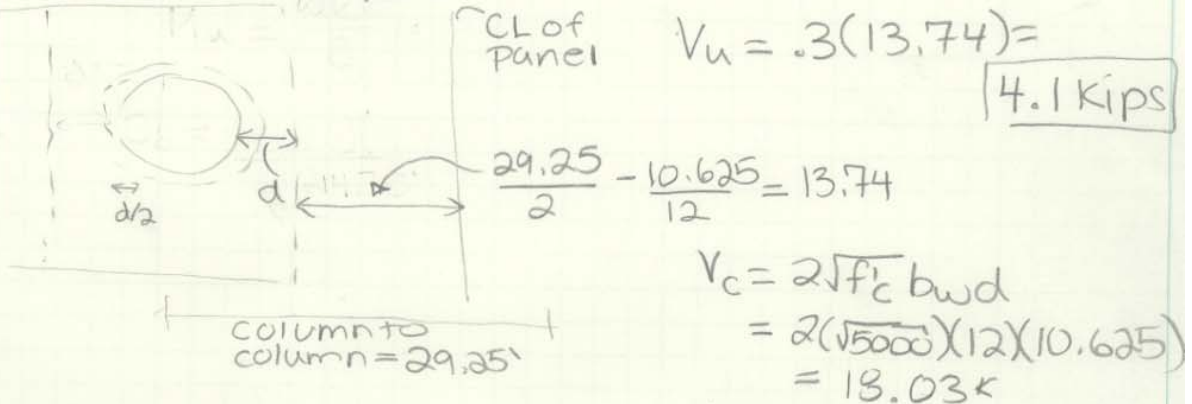 CL of
panel
Vu = .3(13.74)=
4.1 Kips
d
d/2
29.25/2 - 10.625/12 = 13.74
Vc = 2√f'c bwd
= 2(√5000)(12)(10.625)
= 18.03k
column to
column = 29.25'